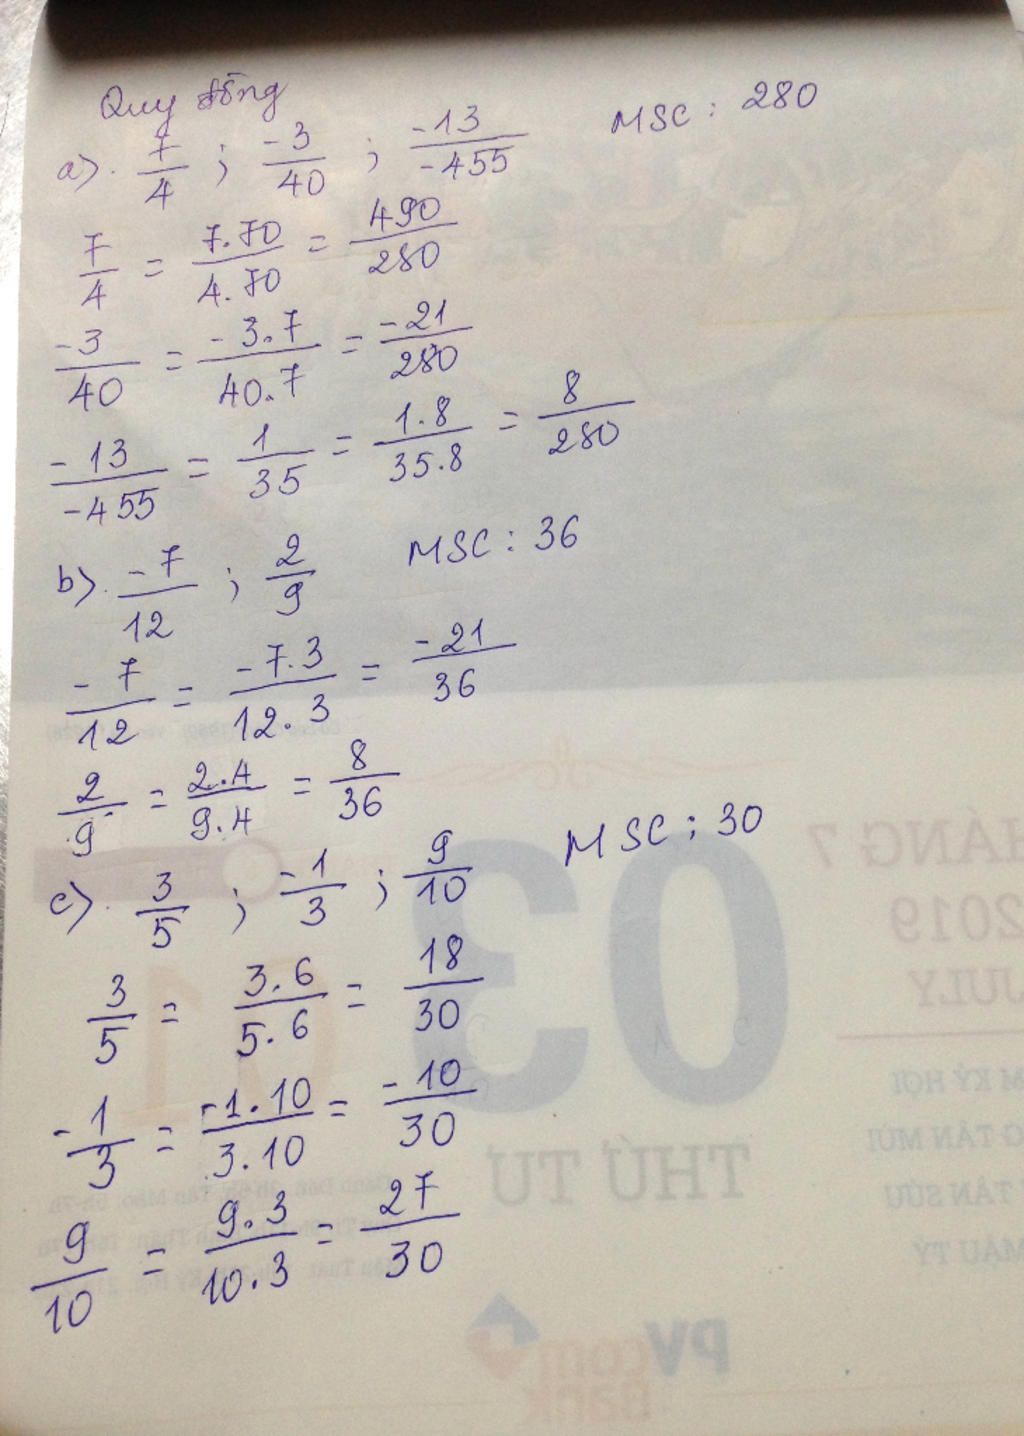 Quy đồng
a). 7/4 ; -3/40 ; -13/-455 MSC : 280
7/4 = 7.70/4.70 = 490/280
-3/40 = -3.7/40.7 = -21/280
-13/-455 = 1/35 = 1.8/35.8 = 8/280
b). -7/12 ; 2/9 MSC : 36
-7/12 = -7.3/12.3 = -21/36
2/9 = 2.4/9.4 = 8/36
c). 3/5 ; -1/3 ; 9/10 MSC : 30
3/5 = 3.6/5.6 = 18/30
-1/3 = -1.10/3.10 = -10/30
9/10 = 9.3/10.3 = 27/30
03
THÁNG 7
2019
JULY
THỨ TƯ
PVcom
Bank